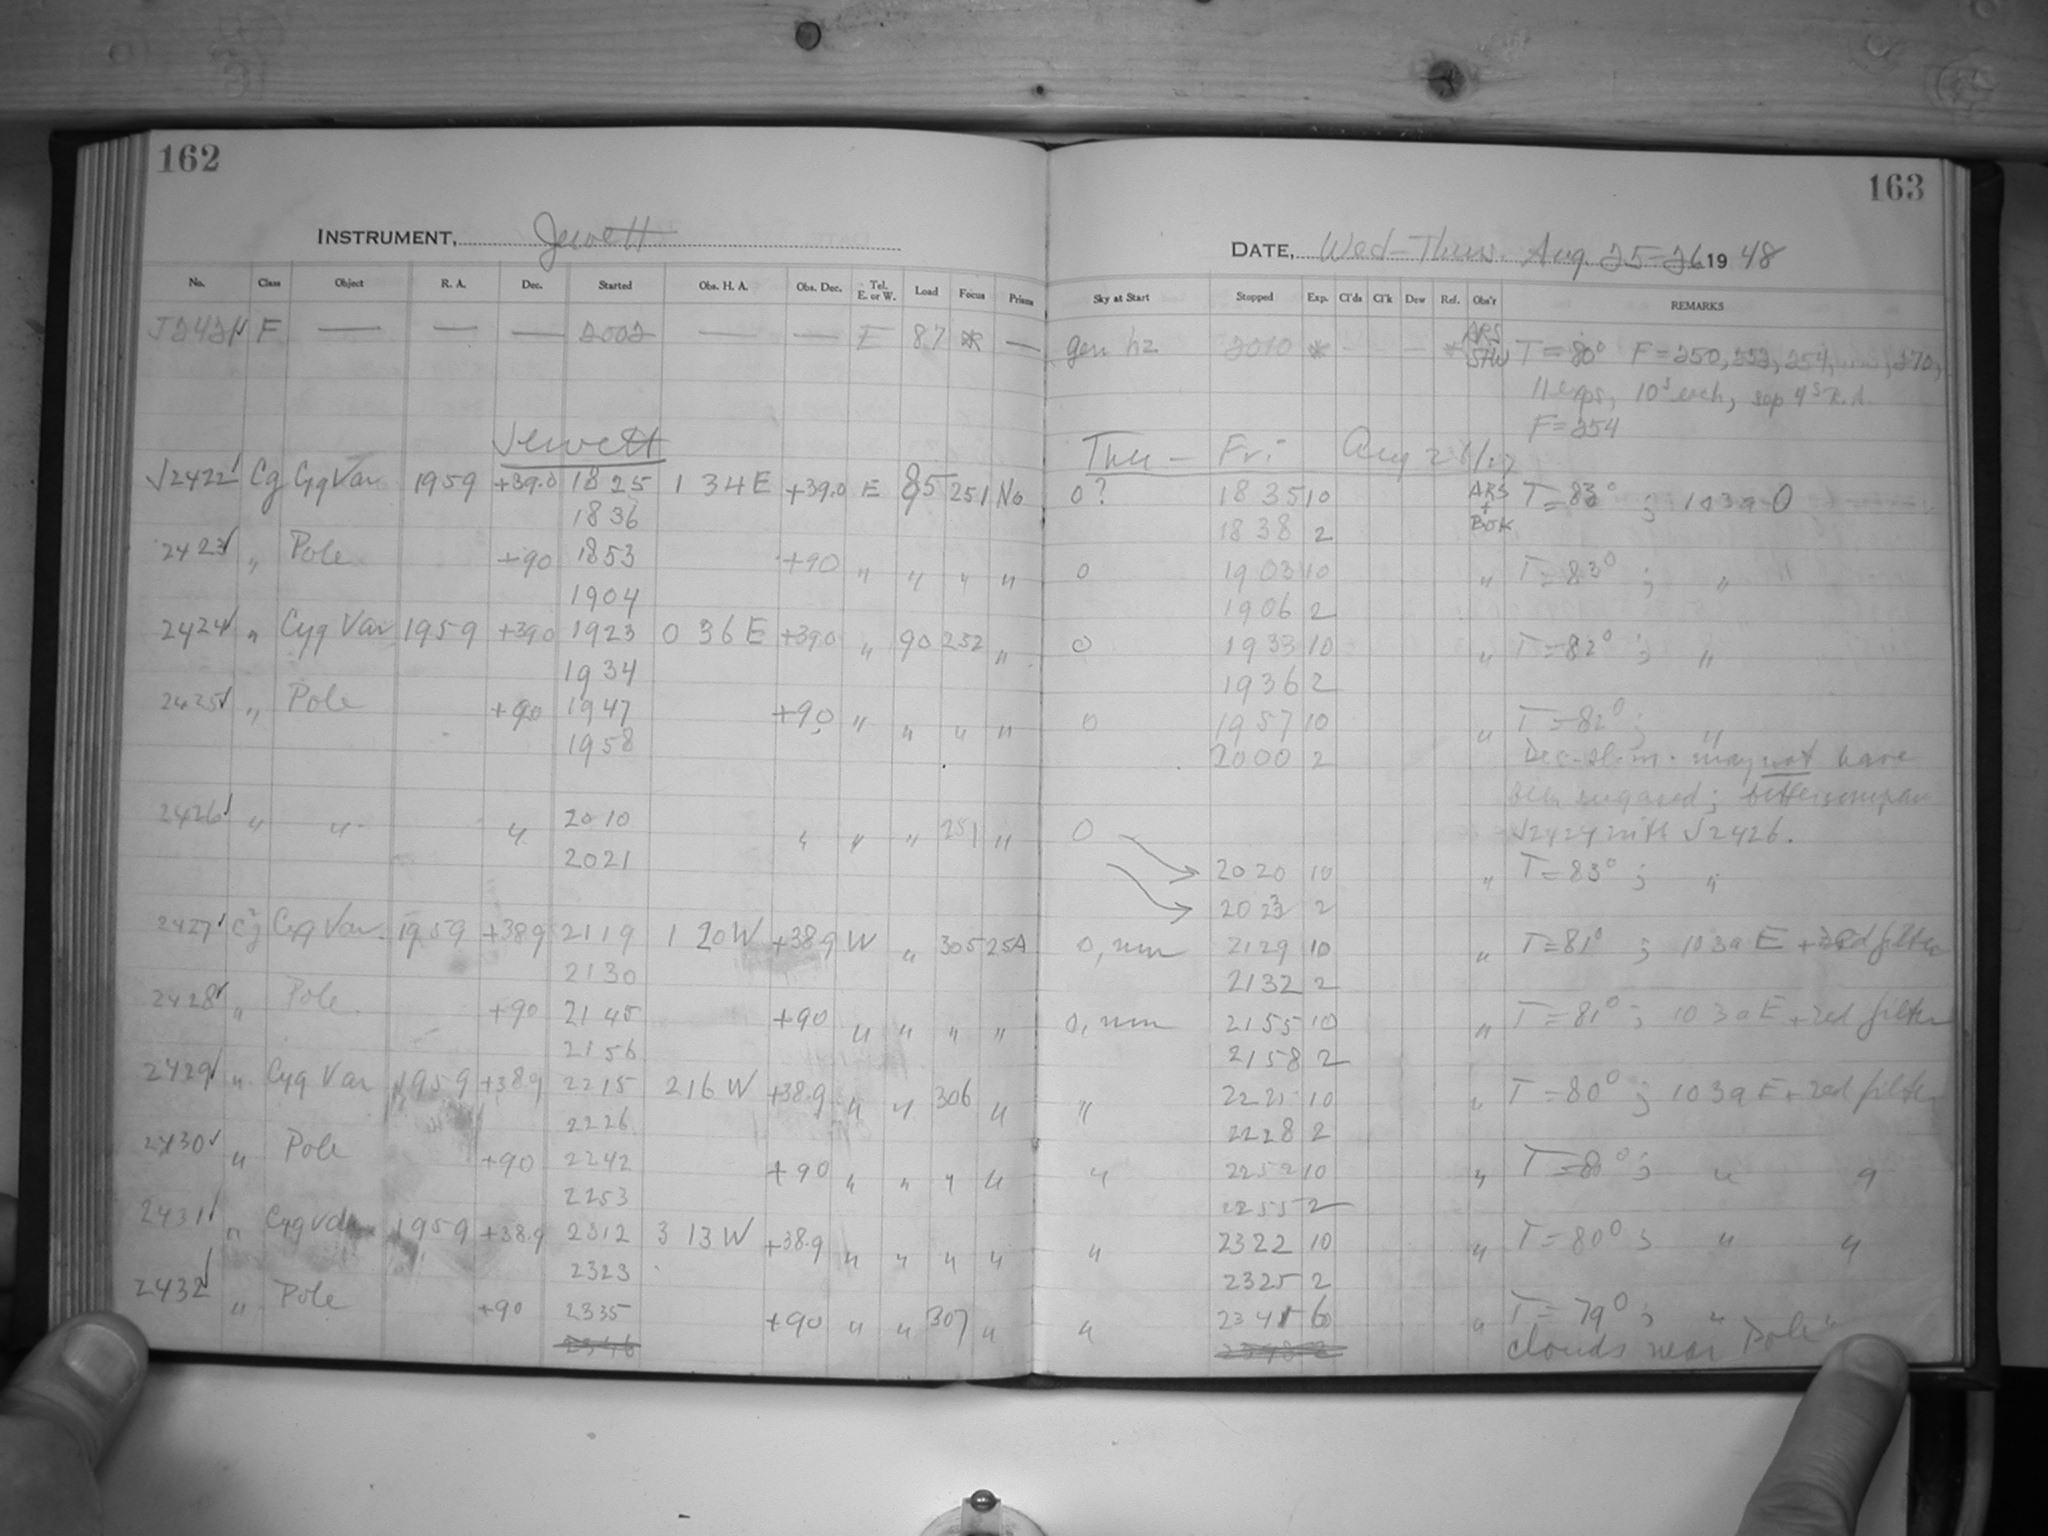 162
163
INSTRUMENT, Jewett
DATE, Wed-Thurs. Aug. 25-26 19 48
No. Class Object R. A. Dec. Started Obs. H. A. Obs. Dec. Tel. E. or W. Load Focus Prism Sky at Start Stopped Exp. Cl'ds Cl'k Dew Ref. Obs'r REMARKS
J2421 F — — — 2002 — — E 87 * — gen hz 2010 * - - * ARS SHW T = 80° F = 250, 252, 254, ...., 270,
11 exps, 10s each, sep 4s R.A.
F = 254
Jewett Thu - Fri Aug 26/27
J2422 Cg Cyg Var 1959 +39.0 1825 1 34 E +39.0 E 85 251 No 0? 1835 10 ARS + BOK T = 83° ; 103a O
1836 1838 2
2423 " Pole +90 1853 +90 " " " " 0 1903 10 " T = 83° ; "
1904 1906 2
2424 " Cyg Var 1959 +39.0 1923 0 36 E +39.0 " 90 252 " 0 1933 10 " T = 82° ; "
1934 1936 2
2425 " Pole +90 1947 +90 " " " " 0 1957 10 " T = 82° ; "
1958 2000 2 Dec. sl. m. may not have
been engaged; better compare
2426 " " " 2010 " " " 251 " 0 J2424 with J2426.
2021 2020 10 " T = 83° ; "
2023 2
2427 Cg Cyg Var. 1959 +38.9 2119 1 20 W +38.9 W " 305 25A 0, 2129 10 " T = 81° ; 103a E + red filter
2130 2132 2
2428 " Pole +90 2145 +90 " " " " 0, 2155 10 " T = 81° ; 103a E + red filter
2156 2158 2
2429 " Cyg Var 1959 +38.9 2215 2 16 W +38.9 " " 306 " " 2225 10 " T = 80° ; 103a E + red filter
2226 2228 2
2430 " Pole +90 2242 +90 " " " " " 2252 10 " T = 80° ; " "
2253 2255 2
2431 " Cyg Var 1959 +38.9 2312 3 13 W +38.9 " " " " " 2322 10 " T = 80° ; " "
2323 2325 2
2432 " Pole +90 2335 +90 " " 307 " " 2341 6 " T = 79° ; " "
2346 2348 2 clouds near Pole